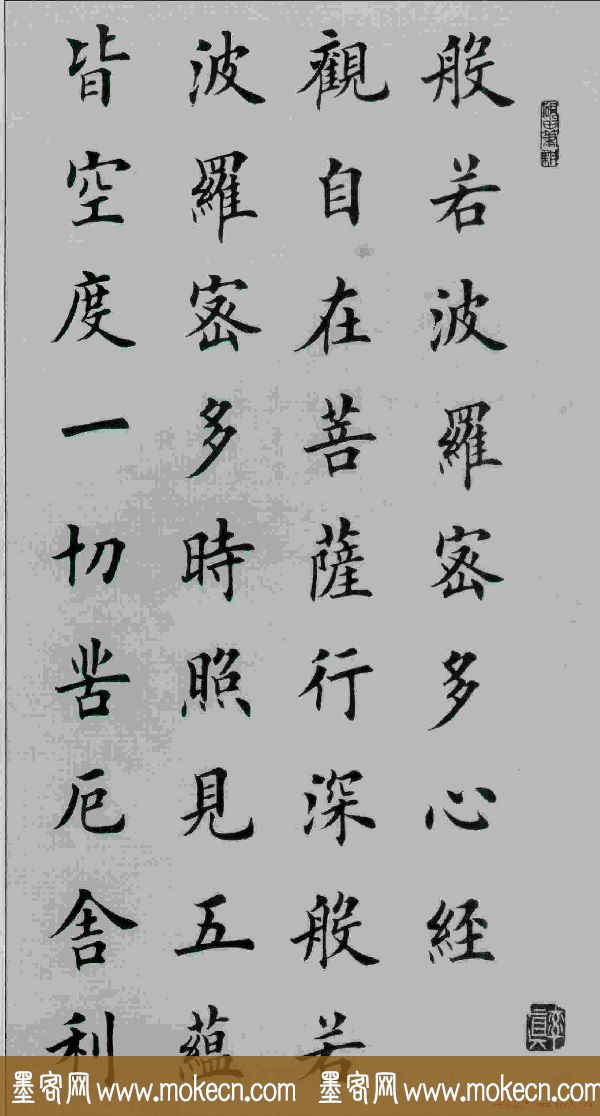 般若波羅蜜多心經
觀自在菩薩行深般若
波羅蜜多時照見五蘊
皆空度一切苦厄舍利
墨客网 www.mokecn.com 墨客网 www.mokecn.com